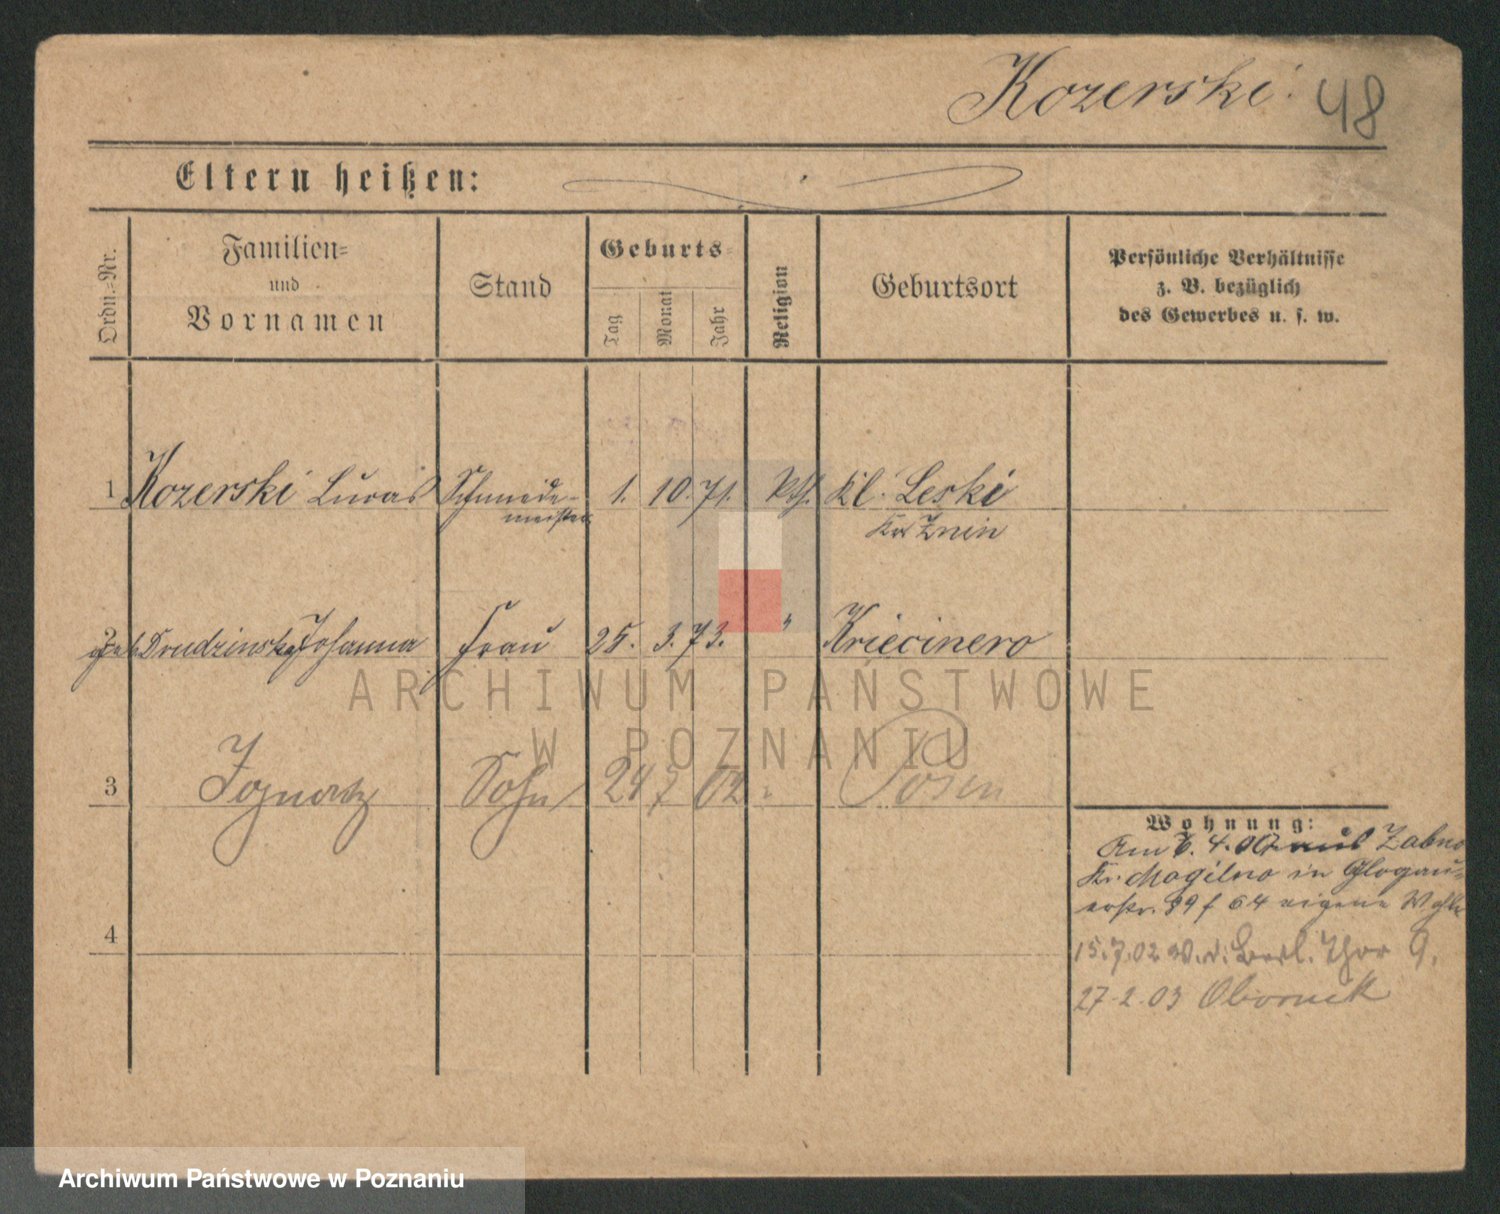 Kozerski 48
Eltern heißen:
Ordn.=Nr.
Familien=
und
Vornamen
Stand
Geburts=
Tag
Monat
Jahr
Religion
Geburtsort
Persönliche Verhältnisse
z. B. bezüglich
des Gewerbes u. s. w.
1 Kozerski Lucas Schmiede- 1. 10. 71. kth. Kl. Leski
meister Kr Znin
2 geb. Johanna Frau 25. 3. 73. "
3 Ignatz Sohn 24 7 02 " Posen
Wohnung:
Am 4. aus Zabno
Kr. Mogilno in Glogau-
erstr. 64 eigene
15.7.02 Berl. Thor 9.
27.2.03 Obornik
4
ARCHIWUM PAŃSTWOWE
W POZNANIU
Archiwum Państwowe w Poznaniu